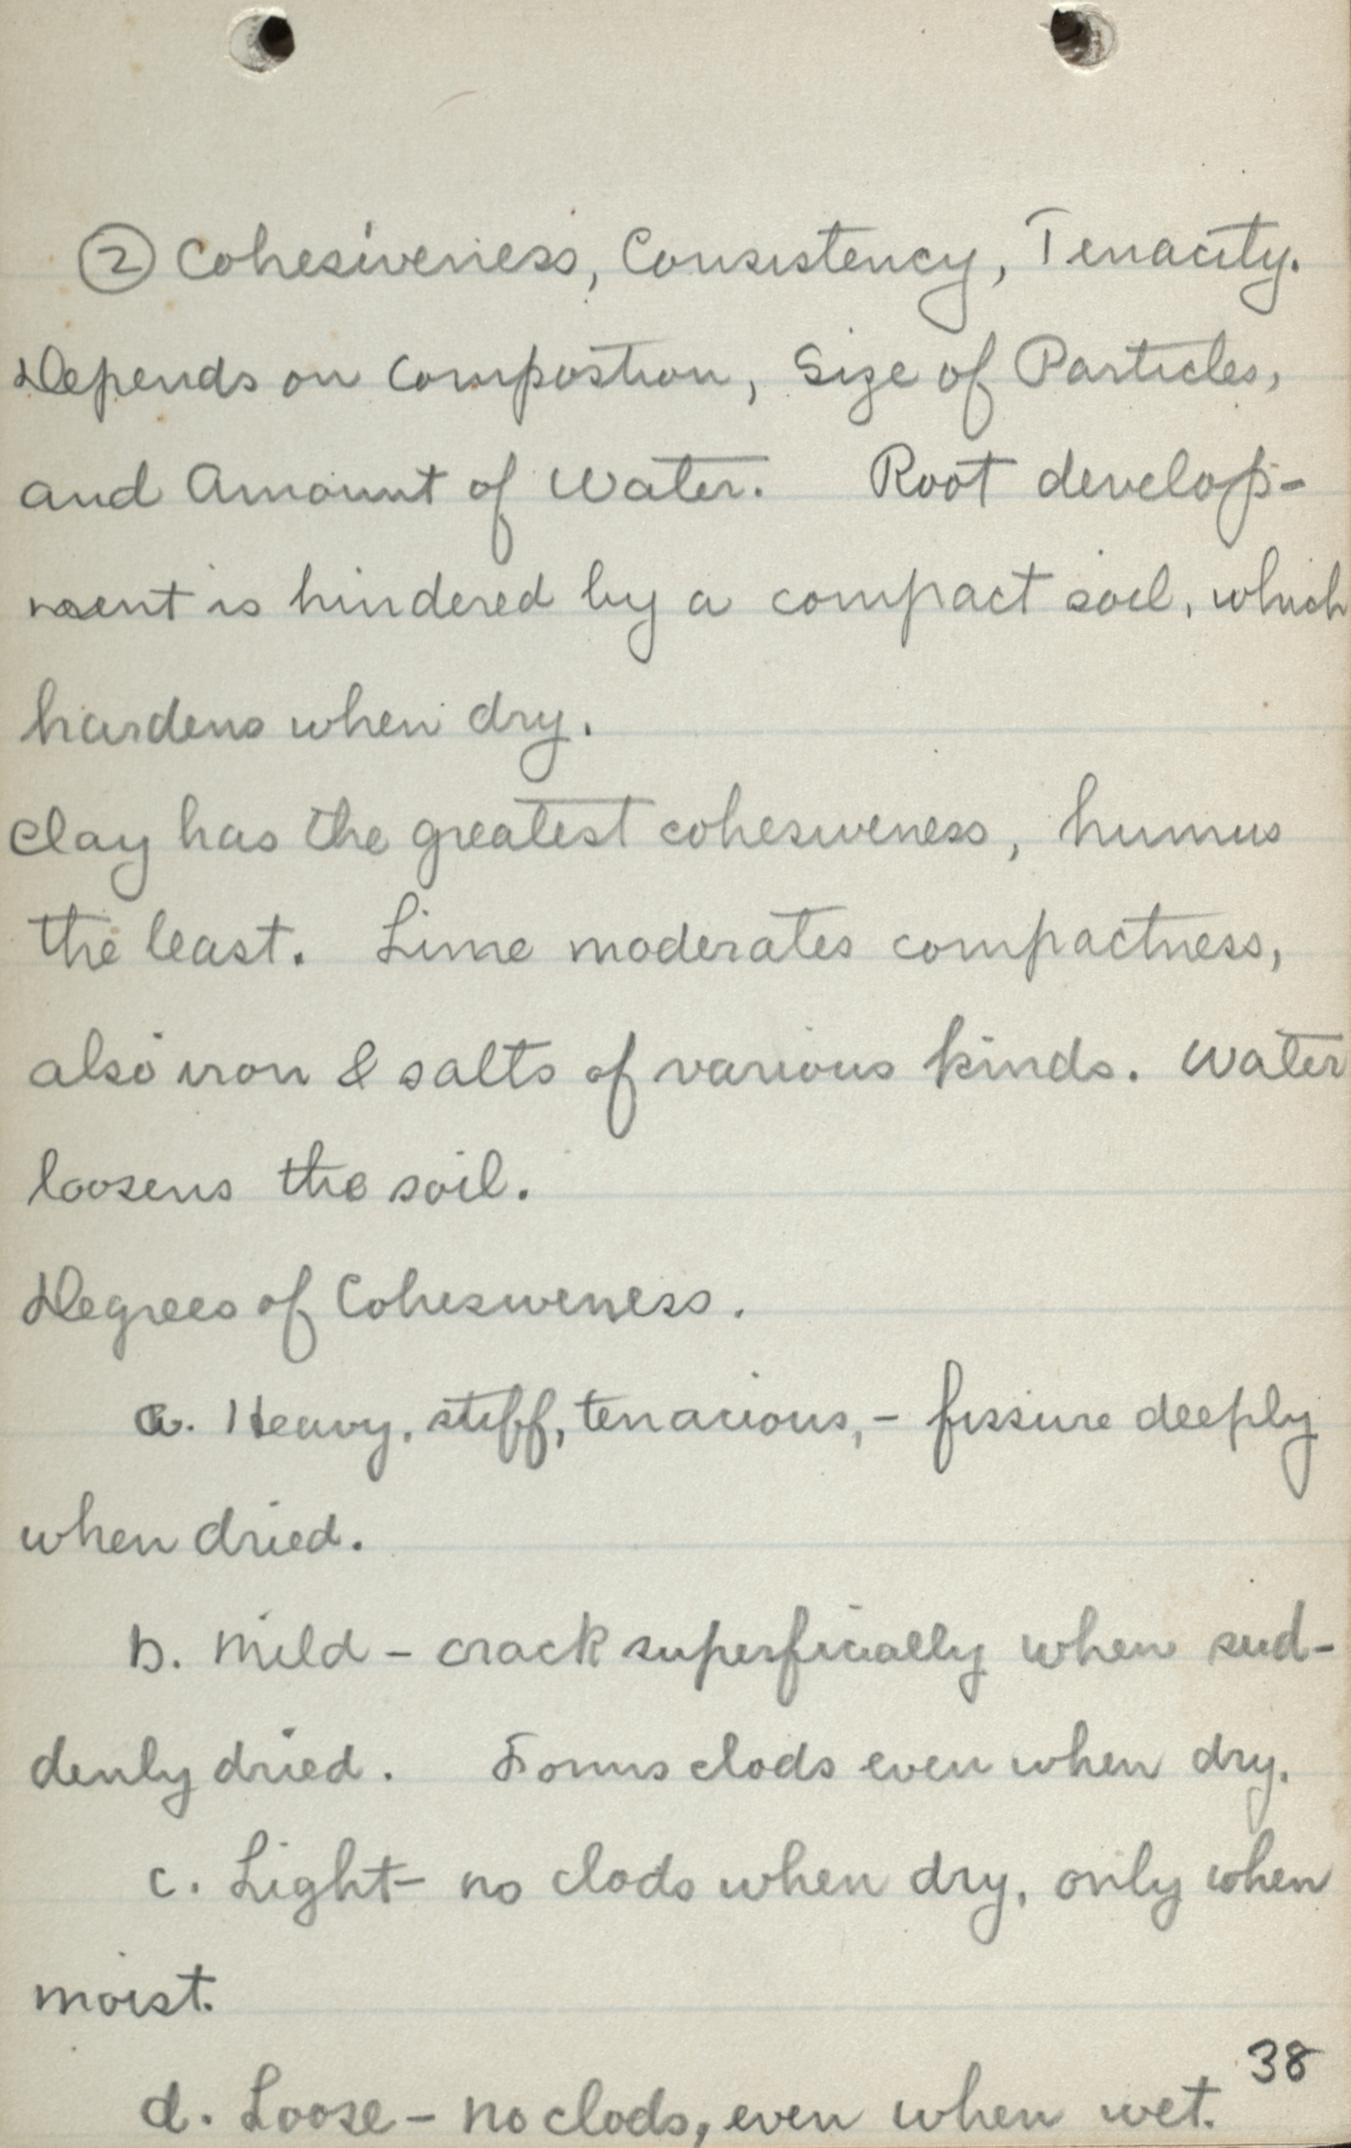 ② Cohesiveness, Consistency, Tenacity.
Depends on Compostion, Size of Particles,
and Amount of Water. Root develop-
ment is hindered by a compact soil, which
hardens when dry.
Clay has the greatest cohesiveness, humus
the least. Lime moderates compactness,
also iron & salts of various kinds. Water
loosens the soil.
Degrees of Cohesiveness.
a. Heavy, stiff, tenacious, - fissure deeply
when dried.
b. Mild - crack superficially when sud-
denly dried. Forms clods even when dry.
c. Light - no clods when dry, only when
moist.
38
d. Loose - no clods, even when wet.